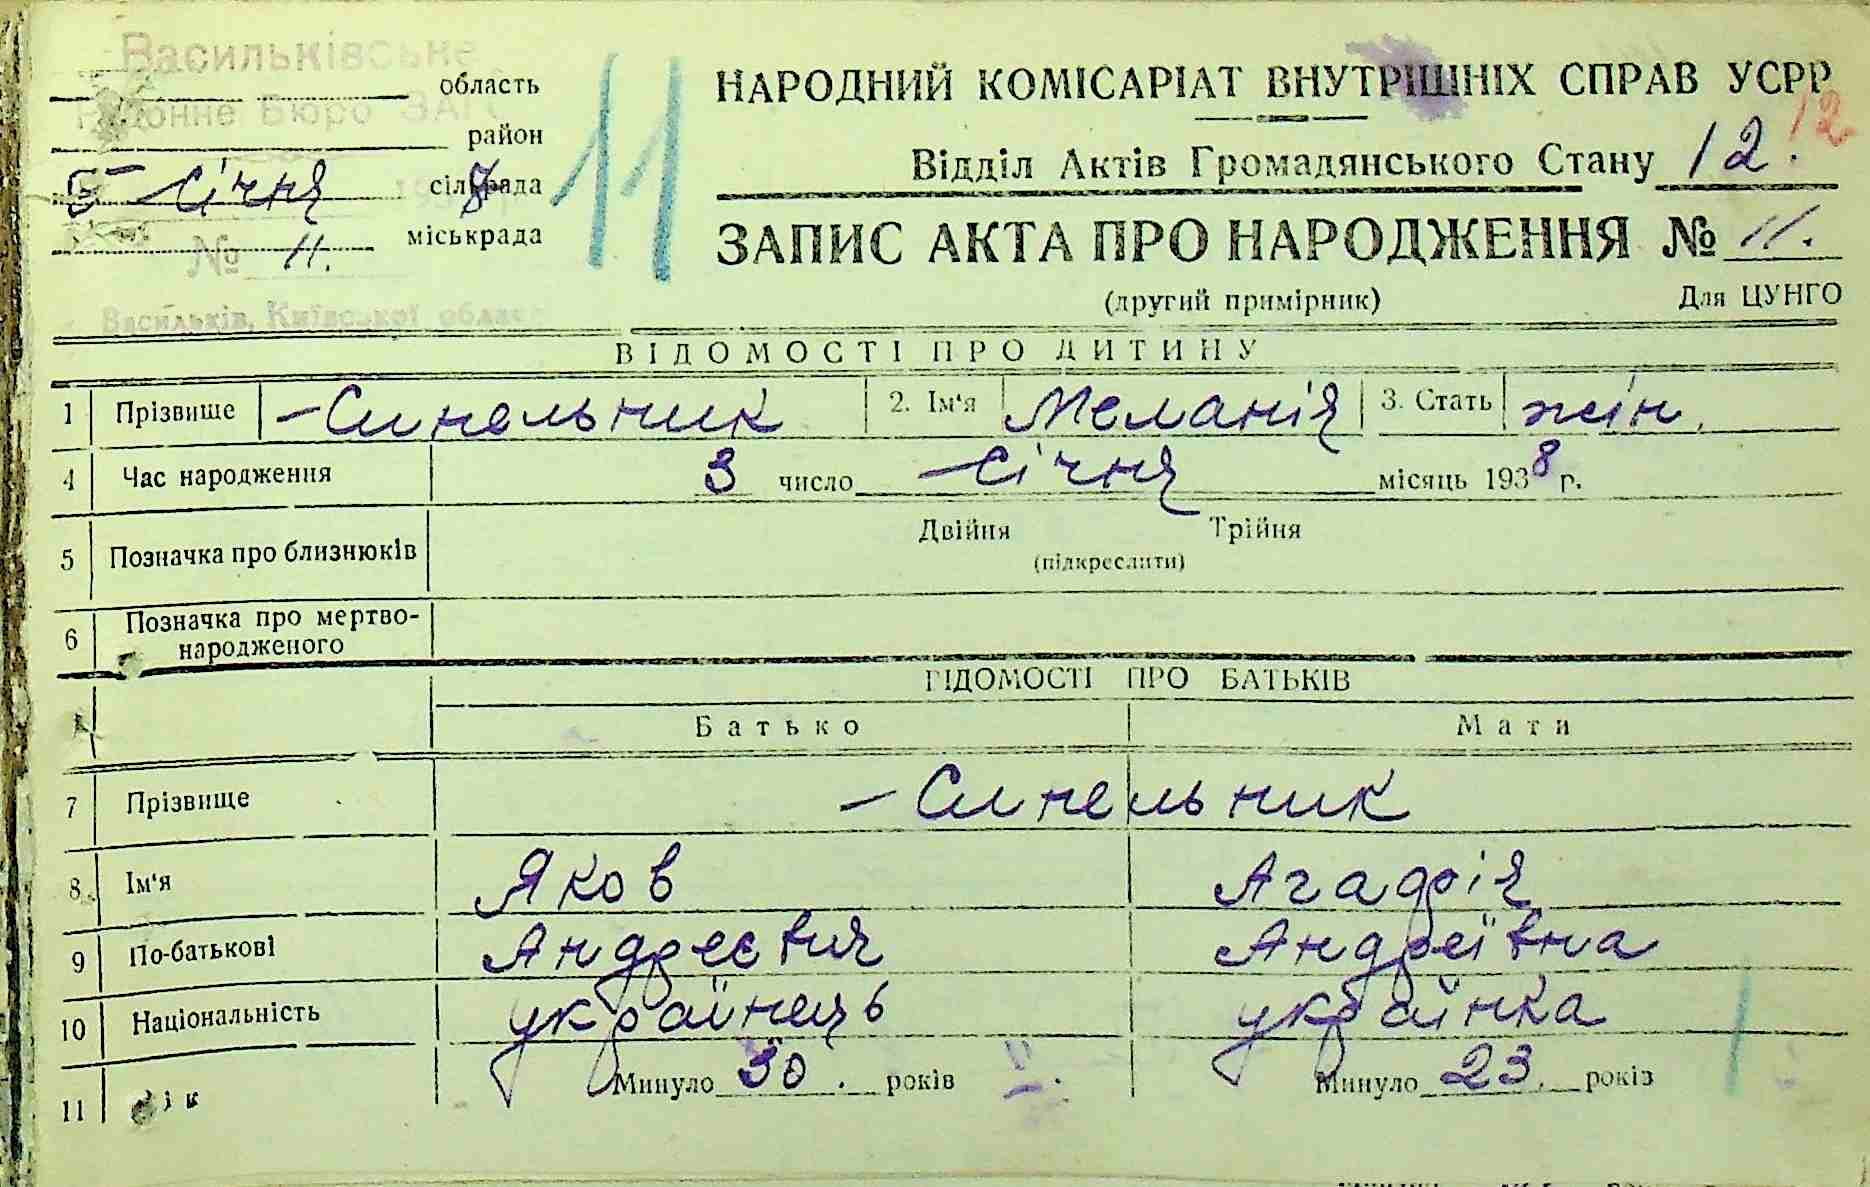 Васильківське
область
Районне Бюро ЗАГС
район
5 Січня сільрада 8
№ 11. міськрада
Васильків, Київської област
11
НАРОДНИЙ КОМІСАРІАТ ВНУТРІШНІХ СПРАВ УСРР
12
Відділ Актів Громадянського Стану 12.
ЗАПИС АКТА ПРО НАРОДЖЕННЯ № 11.
(другий примірник) Для ЦУНГО
ВІДОМОСТІ ПРО ДИТИНУ
1 Прізвище Синельник 2. Ім'я Меланія 3. Стать жін.
4 Час народження 3 число Січня місяць 1938 р.
5 Позначка про близнюків Двійня Трійня
(підкреслити)
6 Позначка про мертво-
народженого
ВІДОМОСТІ ПРО БАТЬКІВ
Батько Мати
7 Прізвище Синельник
8 Ім'я Яков Агафія
9 По-батькові Андреєвич Андреївна
10 Національність українець українка
11 Вік Минуло 30. років Минуло 23. років